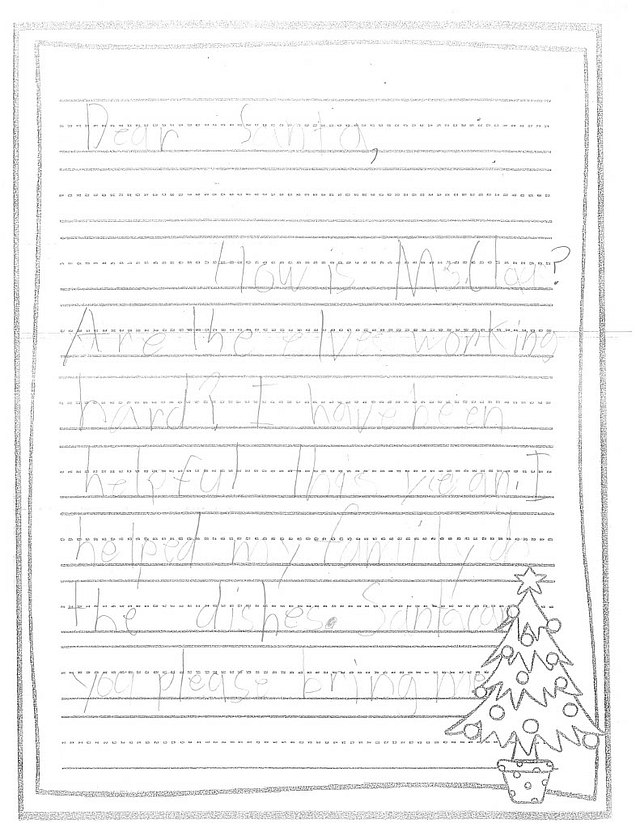 Dear Santa,
How is Ms. Claus?
Are the elves working
hard? I have been
helpful this year. I
helped my family do
the dishes. Santa can
you please bring me